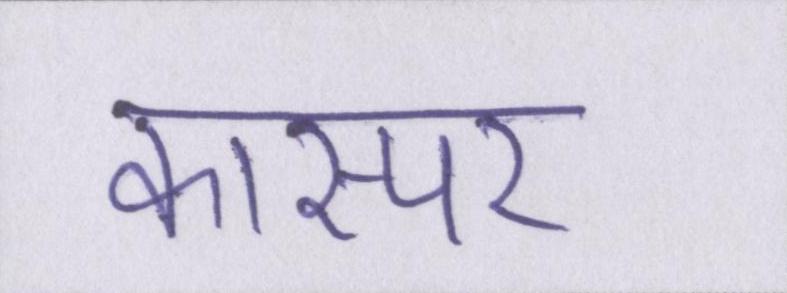 कास्पर